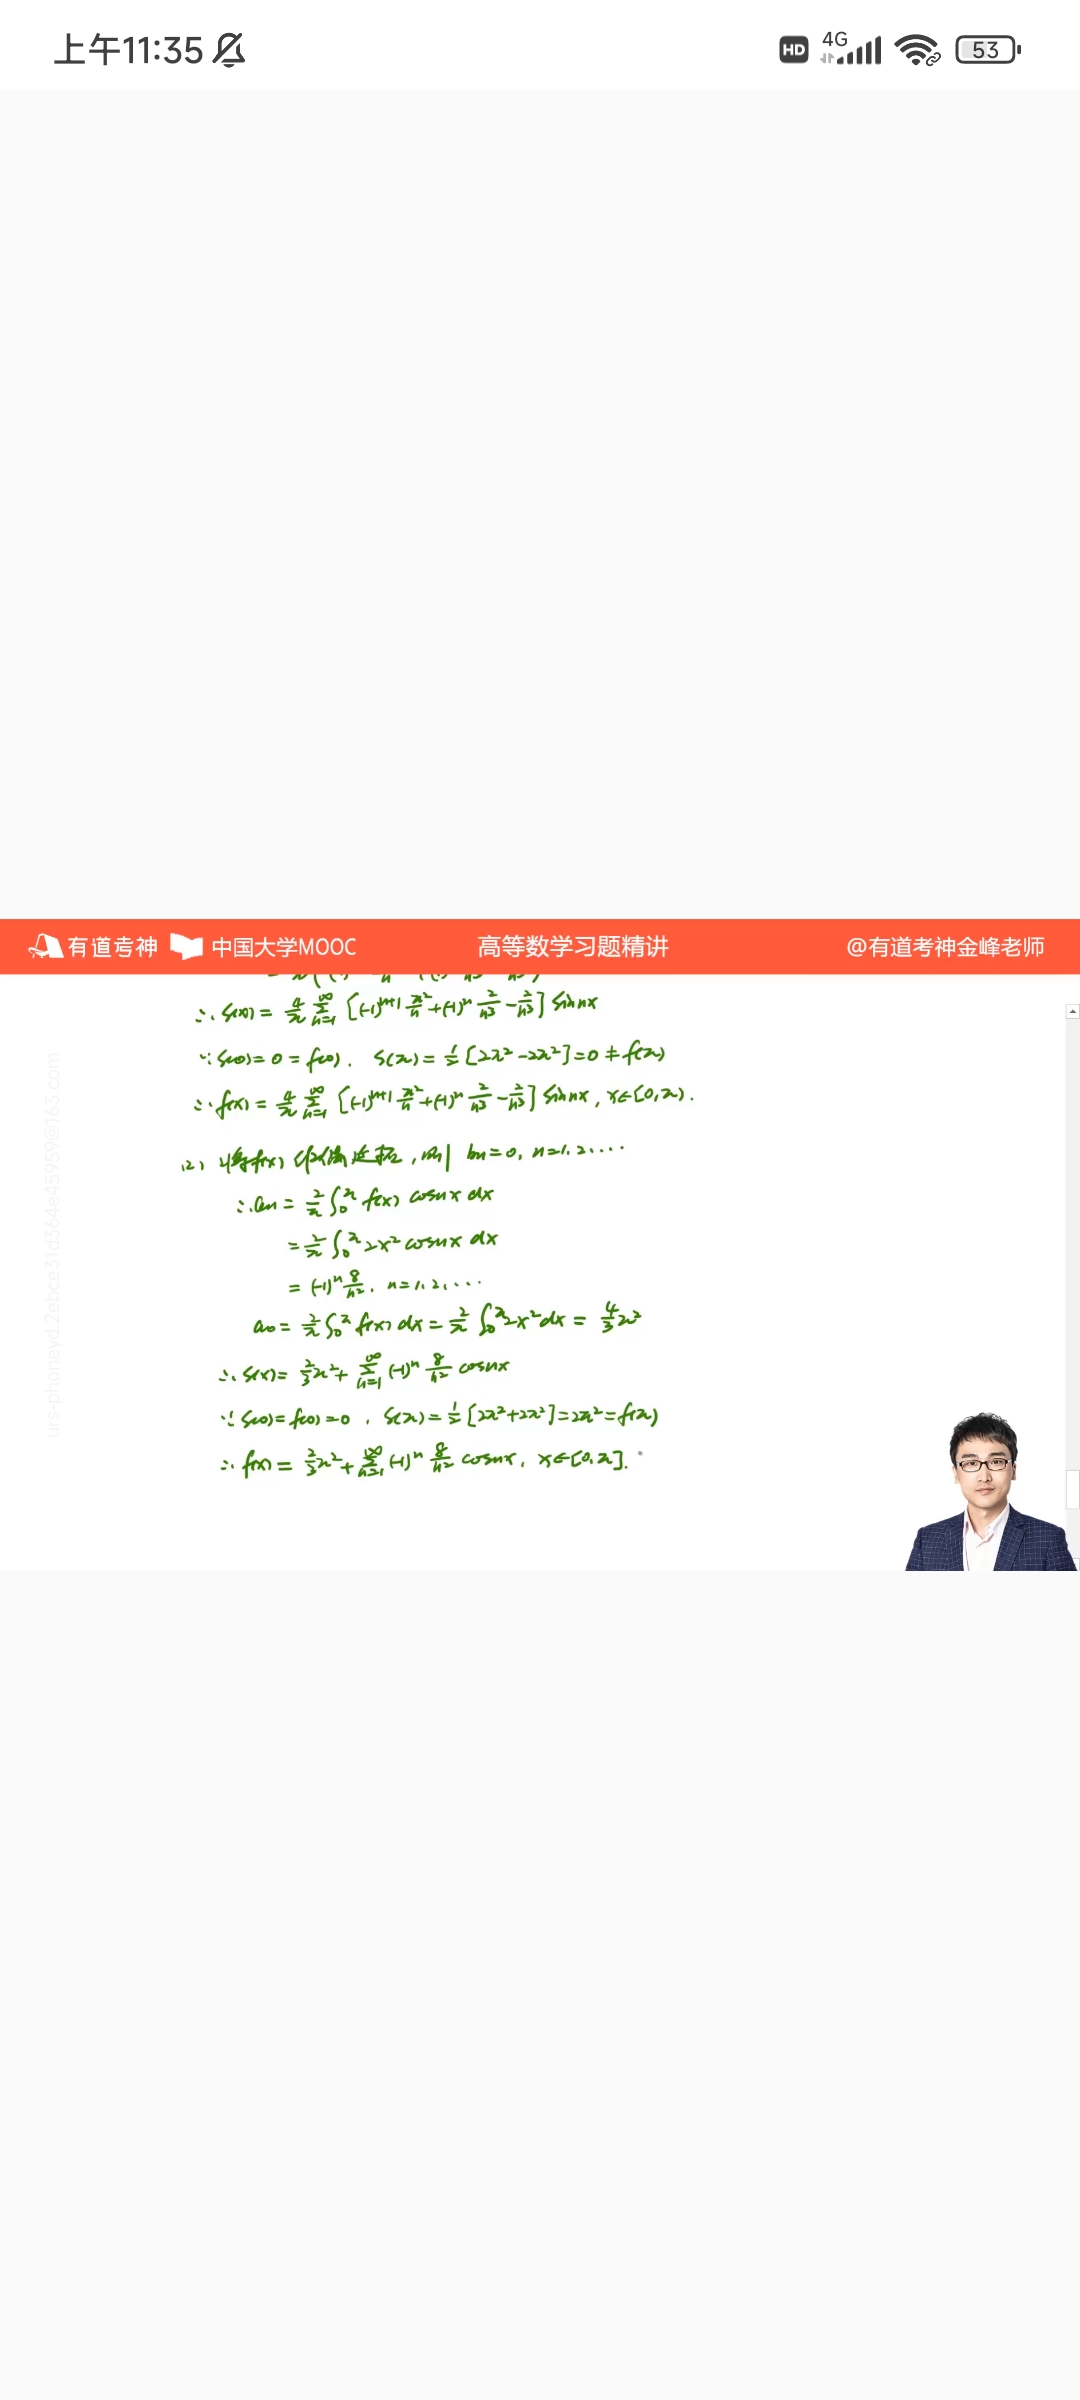 上午11:35
HD 4G 53
有道考神 中国大学MOOC 高等数学习题精讲 @有道考神金峰老师
∴ S(x) = 4/π ∑_{n=1}^{∞} [(-1)^{n+1} π²/n + (-1)^n 2/n³ - 2/n³] sin nx
∵ S(0) = 0 = f(0). S(π) = 1/2 [2π² - 2π²] = 0 ≠ f(π)
∴ f(x) = 4/π ∑_{n=1}^{∞} [(-1)^{n+1} π²/n + (-1)^n 2/n³ - 2/n³] sin nx, x∈[0, π).
(2) 将f(x) 作偶延拓, 则 bn = 0, n = 1, 2, ....
∴ an = 2/π ∫_0^π f(x) cos nx dx
= 2/π ∫_0^π 2x² cos nx dx
= (-1)^n 8/n², n = 1, 2, ....
a0 = 2/π ∫_0^π f(x) dx = 2/π ∫_0^π 2x² dx = 4/3 π²
∴ S(x) = 2/3 π² + ∑_{n=1}^{∞} (-1)^n 8/n² cos nx
∵ S(0) = f(0) = 0, S(π) = 1/2 [2π² + 2π²] = 2π² = f(π)
∴ f(x) = 2/3 π² + ∑_{n=1}^{∞} (-1)^n 8/n² cos nx, x∈[0, π].
urs-phoneyd.2ebce31d364e45959@163.com